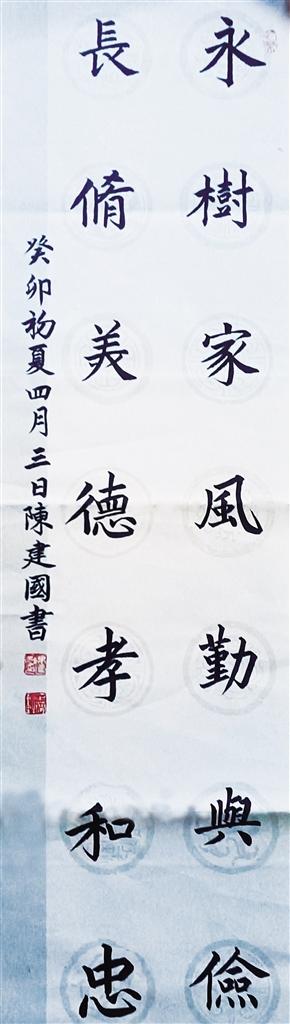 永樹家風勤與儉
長脩美德孝和忠
癸卯初夏四月三日陳建國書